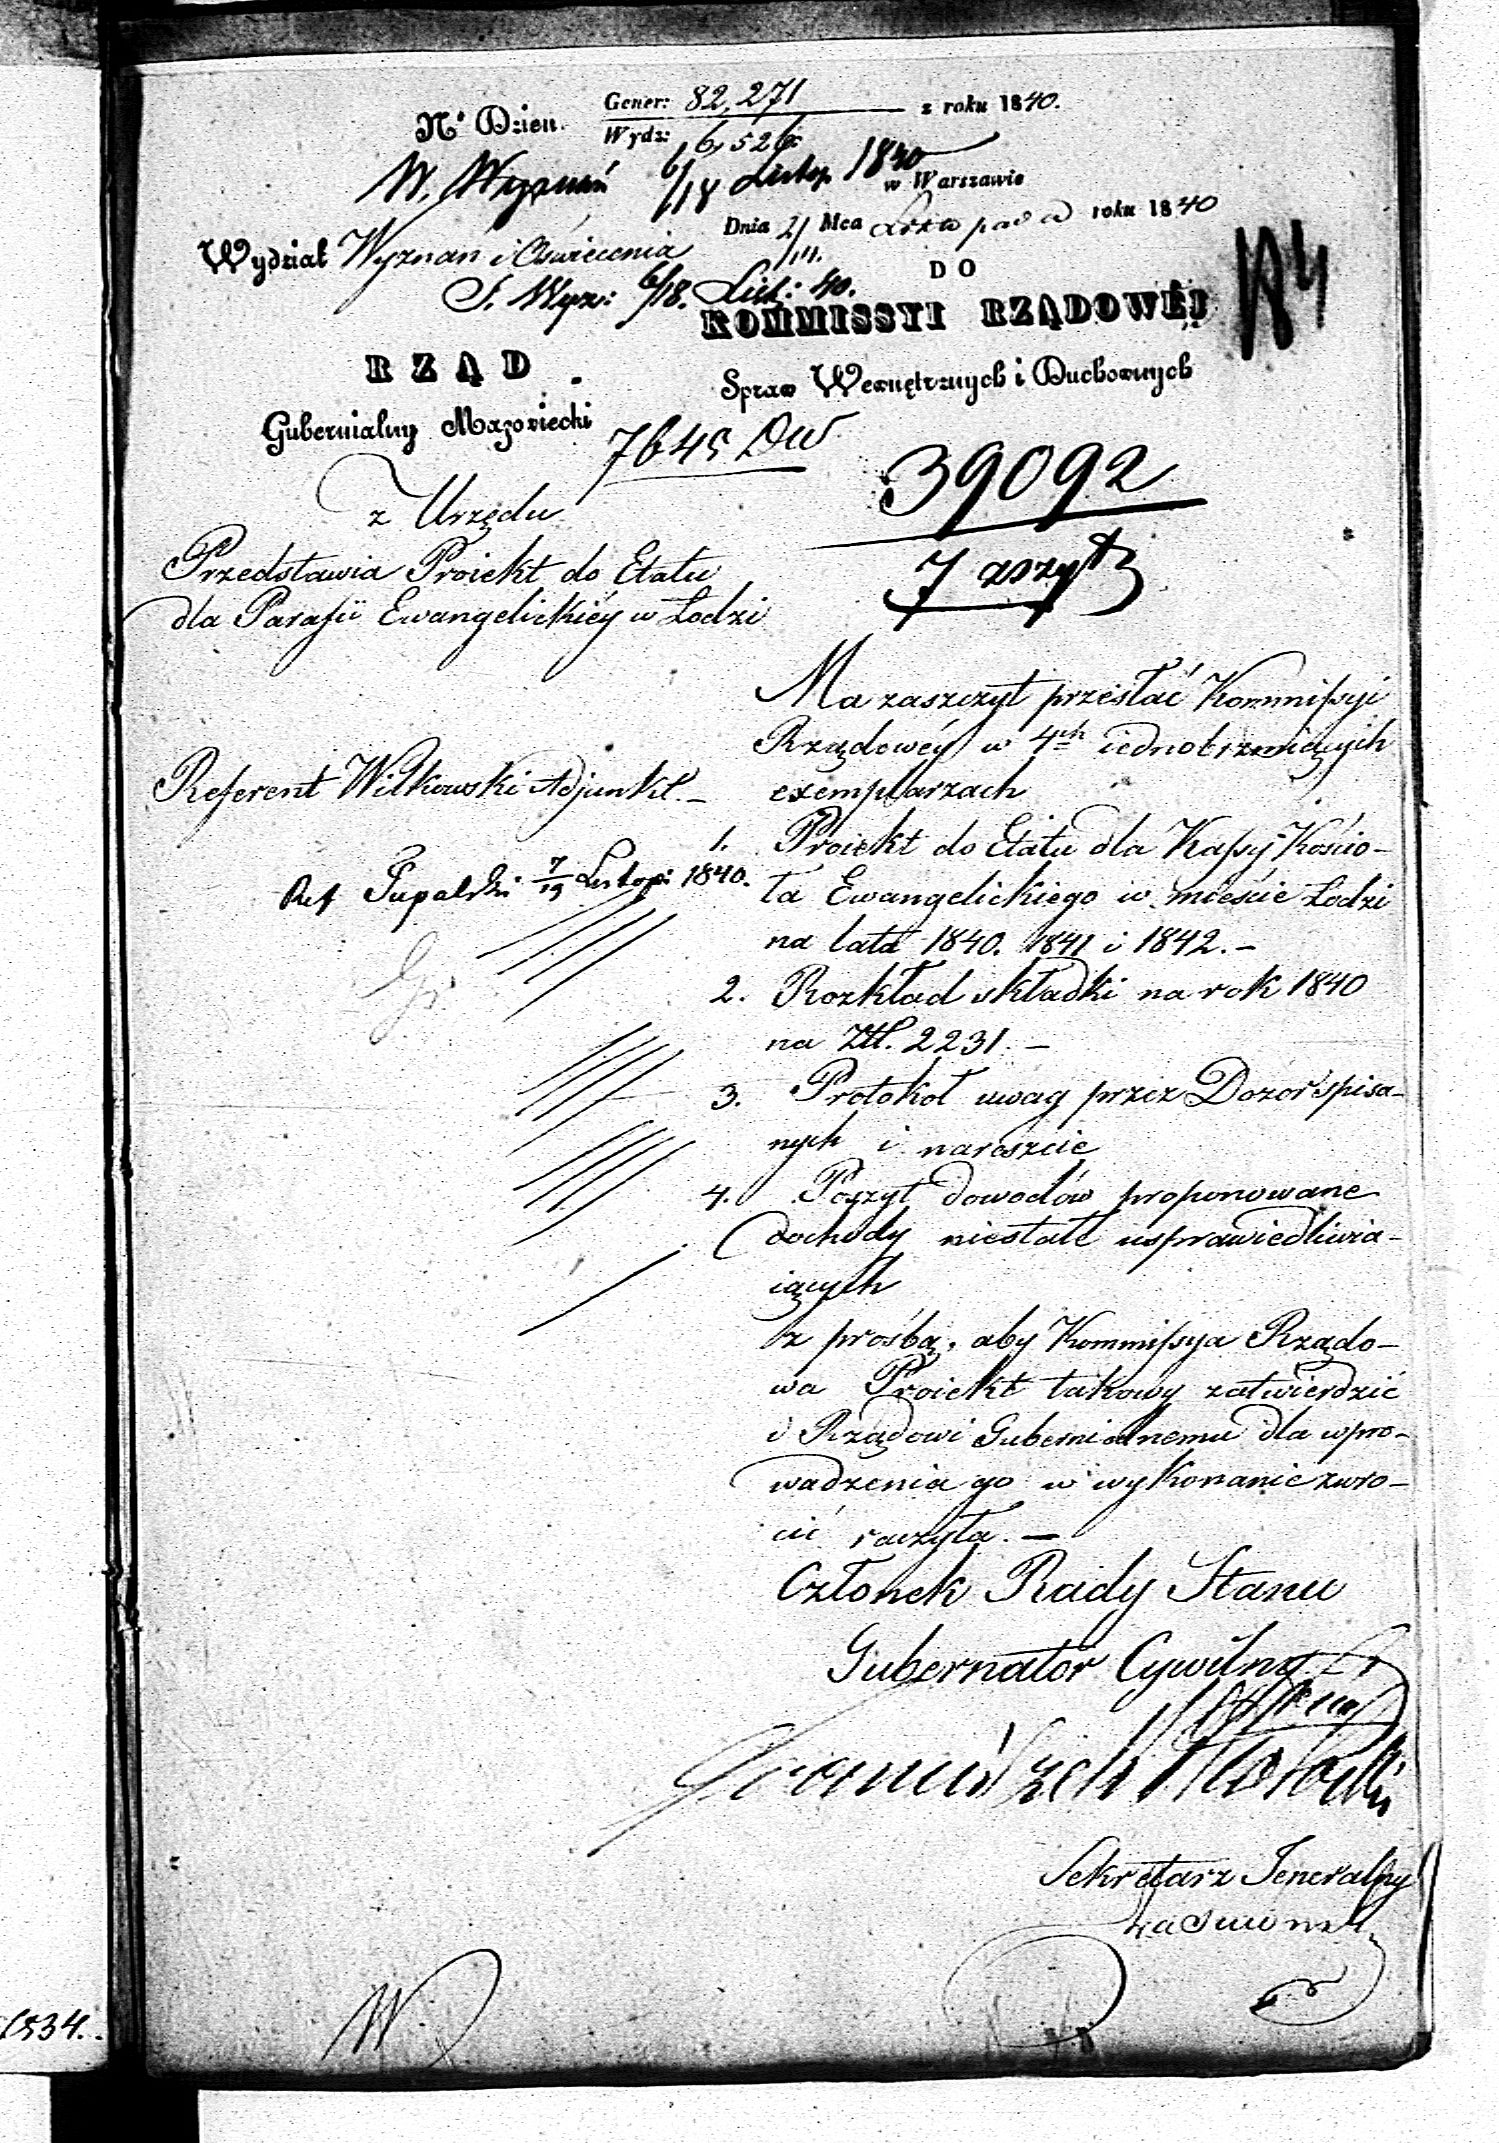 Nº Dzien. Gener: 82,271 z roku 1840.
Wydz: 6,526
W. Wyznań 6/18 Listop 1840
w Warszawie
Dnia 2/14 Mca Listopada roku 1840
Wydział Wyznań i Oświecenia
S. Wyz: 6/18. List: 40.
DO
KOMMISSYI RZĄDOWÉJ
184
RZĄD
Spraw Wewnętrznych i Duchownych
Gubernialny Mazowiecki
7645 DW
39092
7 zszyt
z Urzędu
Przedstawia Proiekt do Etatu
dla Parafii Ewangelickiéy w Łodzi
Referent Wilkowski Adjunkt. –
Ref Pupalski 7/19 Listop: 1840.
Ma zaszczyt przesłać Kommissyi
Rządowéy w 4ch iednobrzmiących
exemplarzach
1. Proiekt do Etatu dla Kassy Kościo–
ła Ewangelickiego w mieście Łodzi
na lata 1840. 1841 i 1842. –
2. Rozkład składki na rok 1840
na Złł. 2231. –
3. Protokół uwag przez Dozór spisa–
nych i nareszcie
4. Poszyt dowodów proponowane
dochody niestałe usprawiedliwia–
iących
z prośbą, aby Kommissya Rządo–
wa Proiekt takowy zatwierdzić
i Rządowi Gubernialnemu dla wpro–
wadzenia go w wykonanie zwró–
cić raczyła. –
Członek Rady Stanu
Gubernator Cywilny
Sekretarz Jeneralny
1534.
W